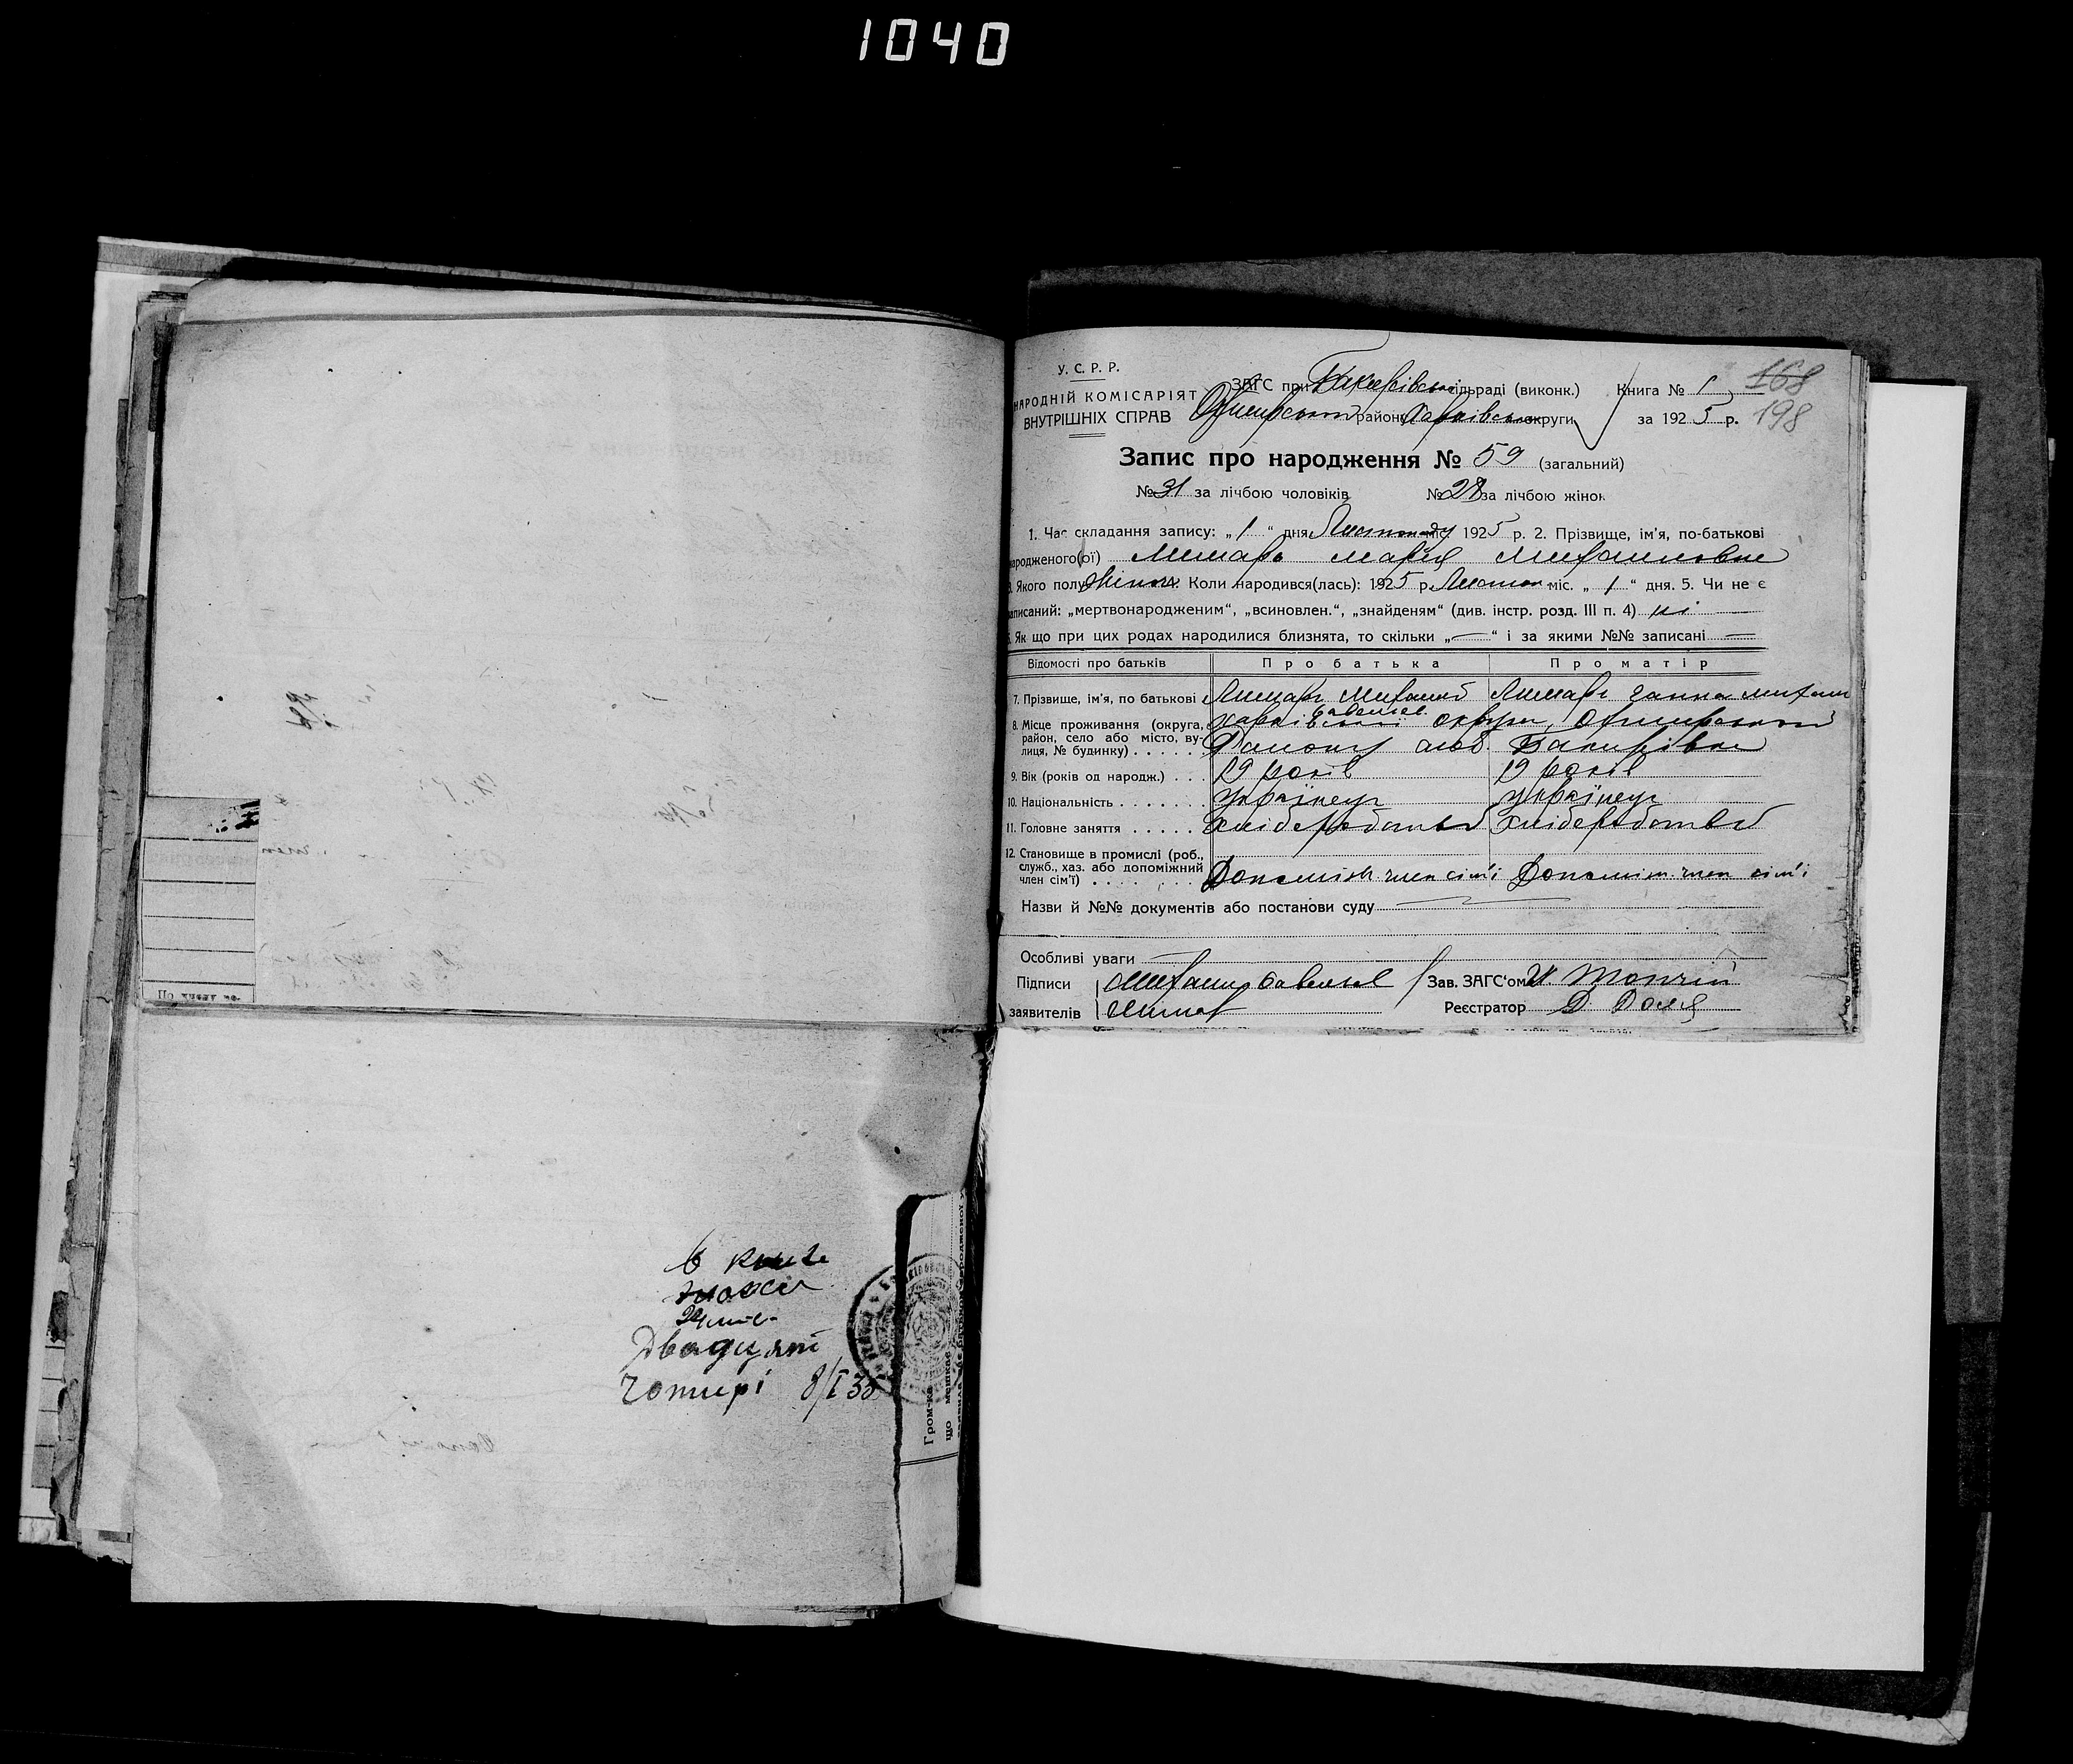 1040
в книзі
24 лис-
Двадцят
Чотирі 8/I 35
Гром-ка
що мешкає
У. С. Р. Р.
НАРОДНІЙ КОМІСАРІЯТ
ВНУТРІШНІХ СПРАВ
ЗАГС при Бакирівськ сільраді (виконк.) Книга № 1 168
Охтирського району Харківської округи за 1925 р. 198
Запис про народження № 59 (загальний)
№ 31 за лічбою чоловіків № 28 за лічбою жінок
1. Час складання запису: „1“ дня Листопаду міс. 1925 р. 2. Прізвище, ім'я, по-батькові
народженого(ої) Лимарь Марія Михайловна
3. Якого полу жіноч. Коли народився(лась): 1925 р. Листоп міс. „1“ дня. 5. Чи не є
записаний: „мертвонародженим“, „всиновлен.“, „знайденям“ (див. інстр. розд. III п. 4) ні
6. Як що при цих родах народилися близнята, то скільки „—“ і за якими №№ записані —
Відомості про батьків Про батька Про матір
7. Прізвище, ім'я, по батькові Лимарь Михаил Савельев. Лимарь Ганна Михаил
8. Місце проживання (округа, район, село або місто, вулиця, № будинку) Харківської округи, Охтирського
Району с. Бакирівка
9. Вік (років од народж.) 19 років 19 років
10. Національність українец українец
11. Головне заняття Хліборобство Хліборобство
12. Становище в промислі (роб.,
служб., хаз. або допоміжний
член сім'ї) Допоміж. член сім'ї Допоміж. член сім'ї
Назви й №№ документів або постанови суду
Особливі уваги
Підписи Михаил Савельев Зав. ЗАГС'ом И. Топчій
заявителів Лимар Реєстратор Д. Доля